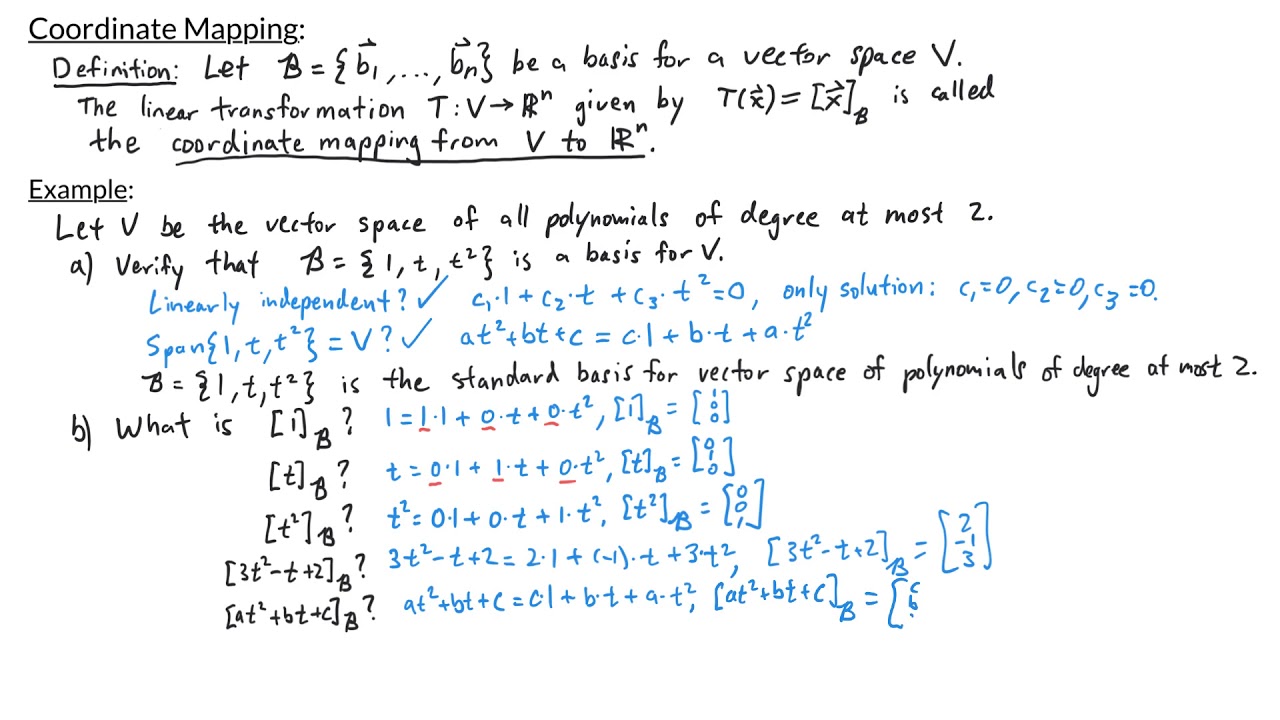 Coordinate Mapping:
Definition: Let B = {b⃗₁, ..., b⃗ₙ} be a basis for a vector space V.
The linear transformation T: V → ℝⁿ given by T(x⃗) = [x⃗]_B is called
the coordinate mapping from V to ℝⁿ.
Example:
Let V be the vector space of all polynomials of degree at most 2.
a) Verify that B = {1, t, t²} is a basis for V.
Linearly independent? ✓ c₁·1 + c₂·t + c₃·t² = 0, only solution: c₁=0, c₂=0, c₃=0.
Span{1, t, t²} = V? ✓ at²+bt+c = c·1 + b·t + a·t²
B = {1, t, t²} is the standard basis for vector space of polynomials of degree at most 2.
b) What is [1]_B? 1 = 1·1 + 0·t + 0·t², [1]_B = [1 0 0]
[t]_B? t = 0·1 + 1·t + 0·t², [t]_B = [0 1 0]
[t²]_B? t² = 0·1 + 0·t + 1·t², [t²]_B = [0 0 1]
[3t²-t+2]_B? 3t²-t+2 = 2·1 + (-1)·t + 3·t², [3t²-t+2]_B = [2 -1 3]
[at²+bt+c]_B? at²+bt+c = c·1 + b·t + a·t², [at²+bt+c]_B = [c b